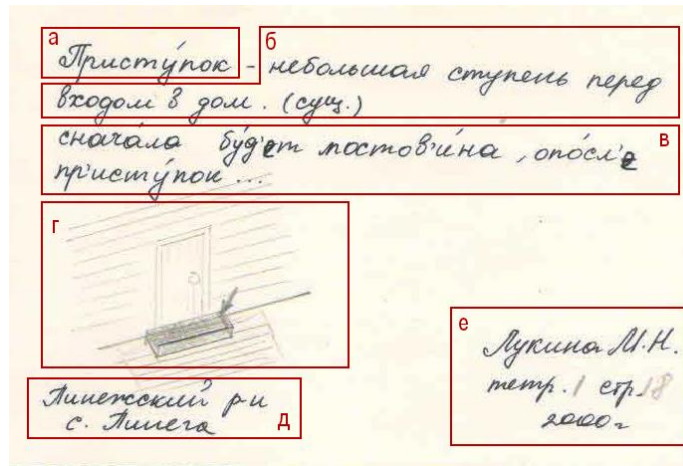 а
б
Присту́пок - небольшая ступень перед
входом в дом. (сущ.)
снача́ла бу́д'ет мостов'и́на, опо́сл'е
пр'исту́пок ...
в
г
Пинежский р-н
с. Пинега
д
е
Лукина М.Н.
тетр. 1 стр. 18
2000 г